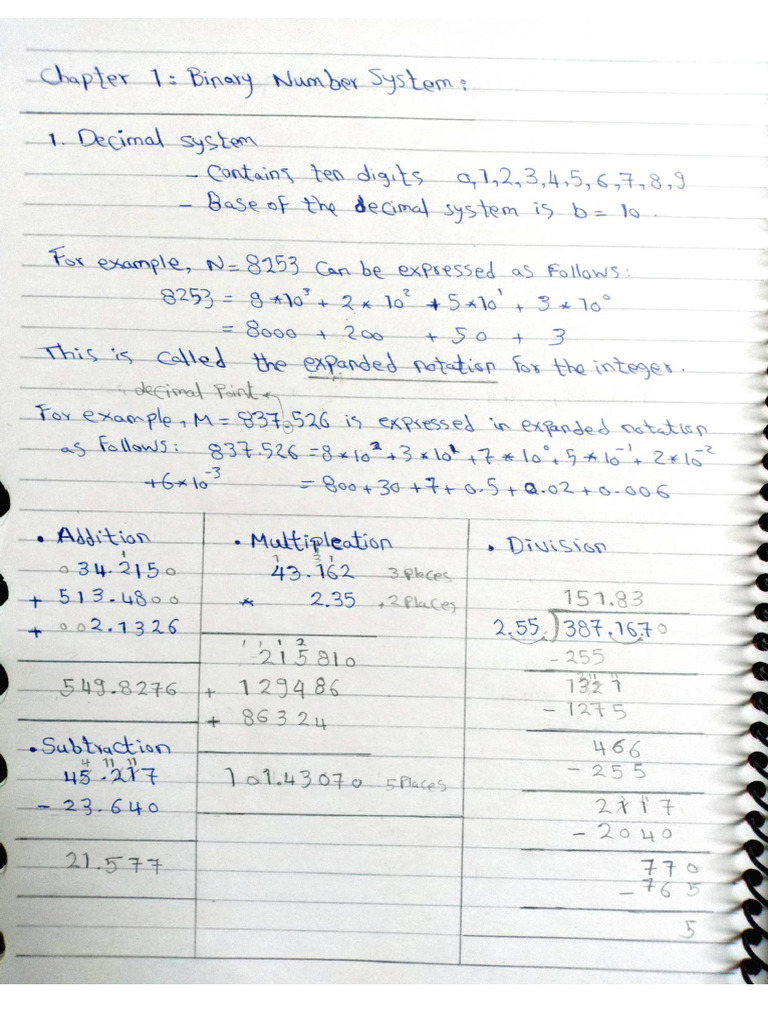 Chapter 1: Binary Number System:
1. Decimal system
- Contains ten digits 0,1,2,3,4,5,6,7,8,9
- Base of the decimal system is b = 10.
For example, N = 8253 can be expressed as follows:
8253 = 8*10³ + 2*10² + 5*10¹ + 3*10⁰
= 8000 + 200 + 50 + 3
This is called the expanded notation for the integer.
decimal Point
For example, M = 837.526 is expressed in expanded notation
as follows: 837.526 = 8*10² + 3*10¹ + 7*10⁰ + 5*10⁻¹ + 2*10⁻²
+ 6*10⁻³ = 800 + 30 + 7 + 0.5 + 0.02 + 0.006
• Addition
034.2150
+ 513.4800
+ 002.1326
549.8276
• Subtraction
45.217
- 23.640
21.577
• Multipleation
43.162 3 places
* 2.35 , 2 Places
215810
+ 129486
+ 86324
101.43070 5 Places
• Division
151.83
2.55 ) 387.1670
- 255
1321
- 1275
466
- 255
2117
- 2040
770
- 765
5